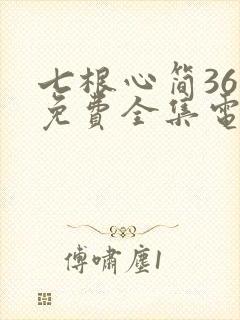 七根心简36
免費全集電
傅嘯塵1